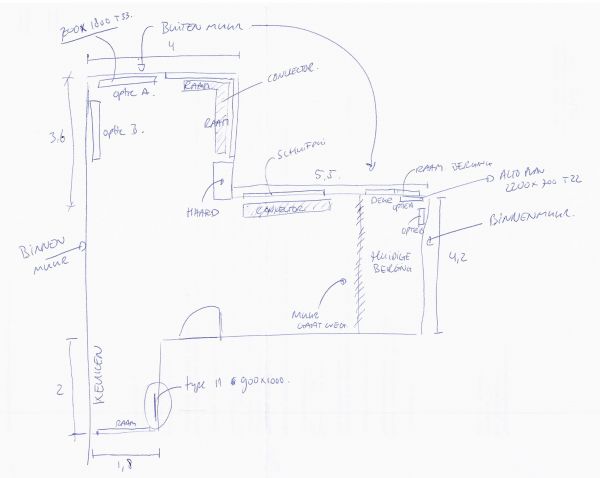 700 x 1800 T33.
BUITEN MUUR
4
CONVECTOR.
RAAM
optie A.
optie B.
RAAM
3,6
SCHUIFPUI
5,5.
RAAM BERGING
ALTO PLAN
2200 x 700 T22
DEUR
HAARD
CONVECTOR
BINNENMUUR.
BINNEN
MUUR
HUIDIGE
BERGING
4,2
MUUR
GAAT WEG
KEUKEN
2
type 11
900x1000.
RAAM
1,8